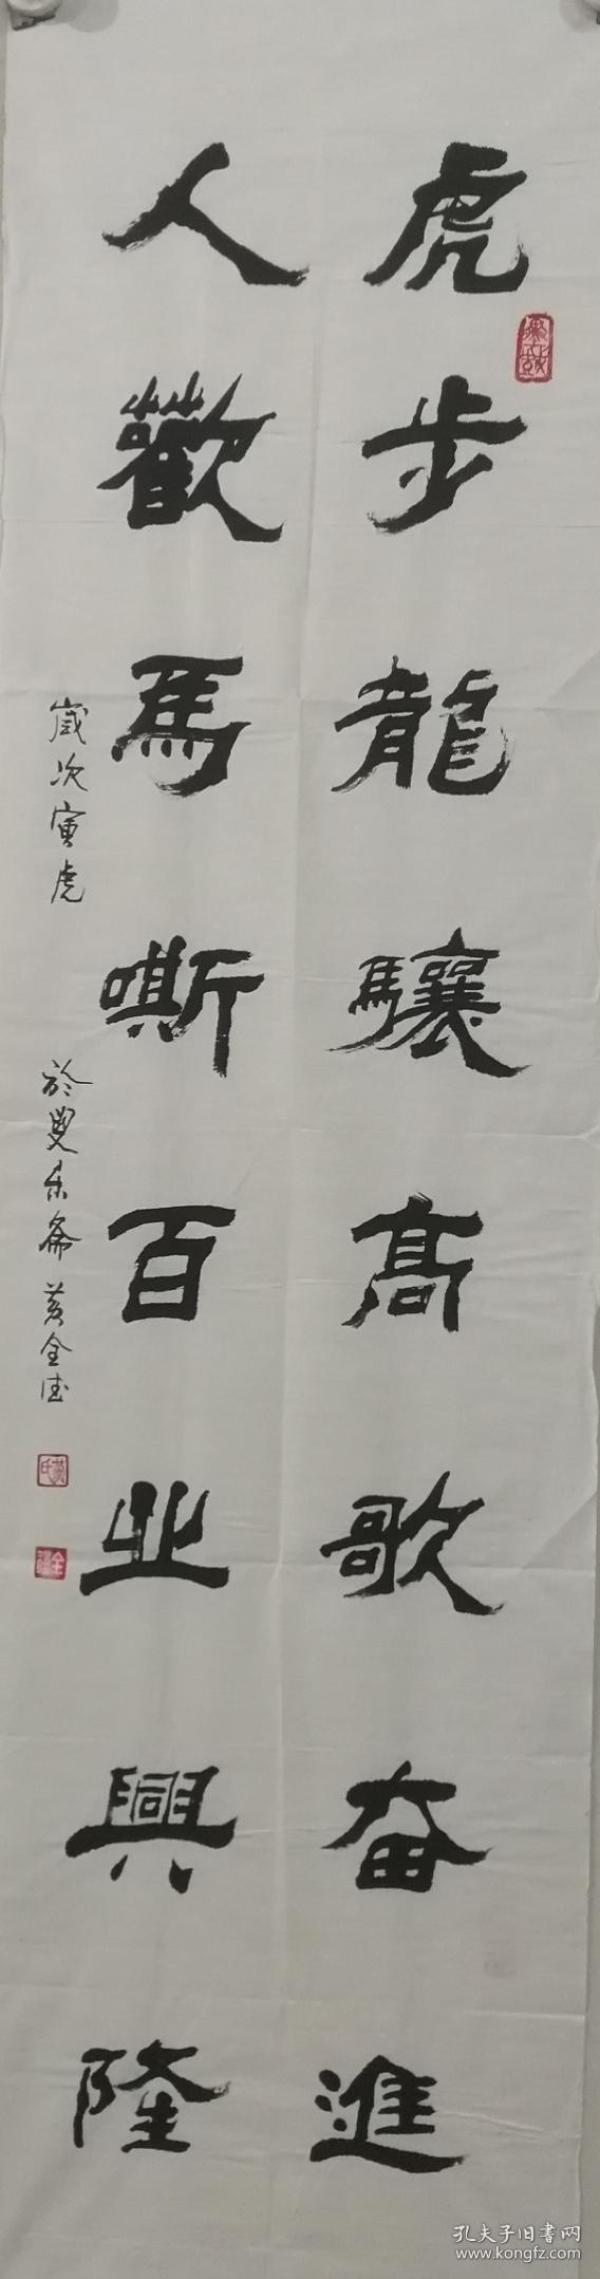 虎步龍驤高歌奋進
人歡馬嘶百业興隆
歲次寅虎 於叟乐斋 黄全德
黄氏
孔夫子旧书网
www.kongfz.com